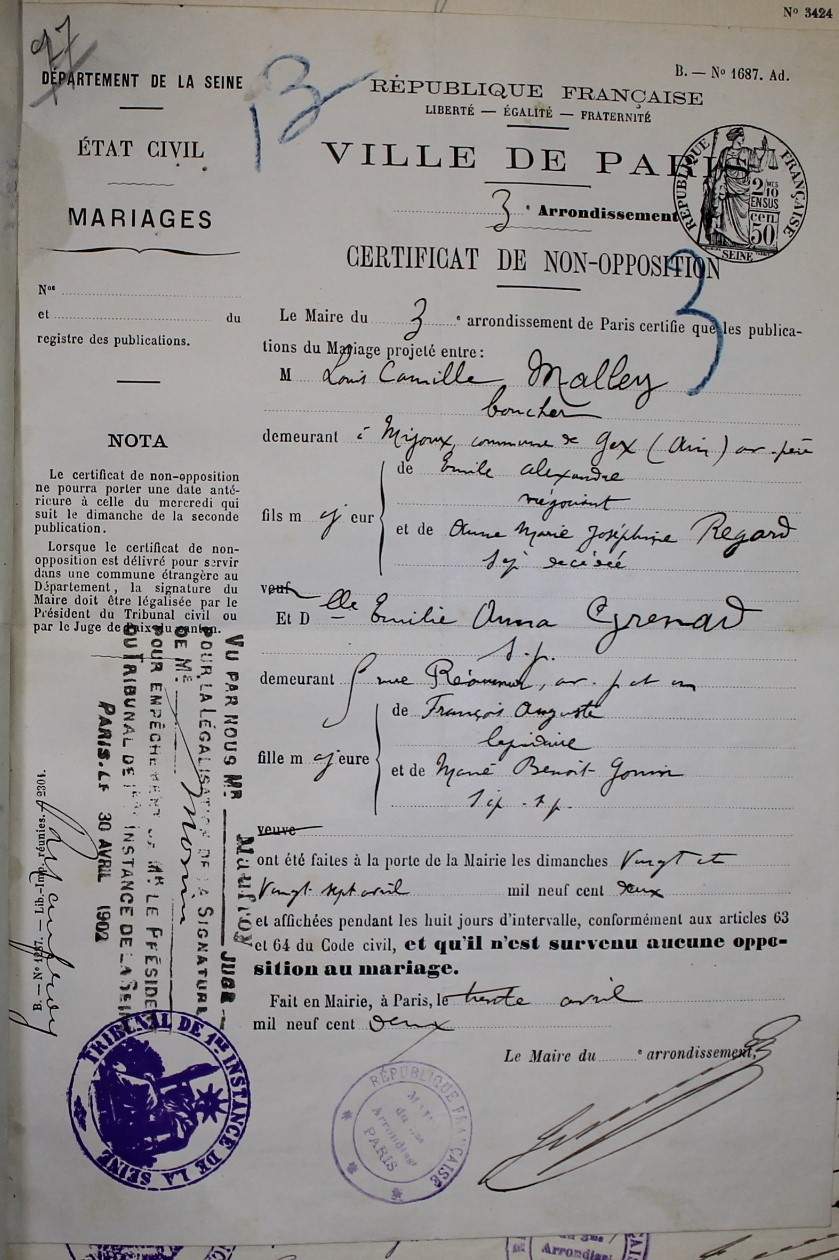 Nº 3424
B. — Nº 1687. Ad.
DÉPARTEMENT DE LA SEINE
ÉTAT CIVIL
MARIAGES
Nos
et du
registre des publications.
NOTA
Le certificat de non-opposition
ne pourra porter une date anté-
rieure à celle du mercredi qui
suit le dimanche de la seconde
publication.
Lorsque le certificat de non-
opposition est délivré pour servir
dans une commune étrangère au
Département, la signature du
Maire doit être légalisée par le
Président du Tribunal civil ou
par le Juge de Paix du canton.
RÉPUBLIQUE FRANÇAISE
LIBERTÉ — ÉGALITÉ — FRATERNITÉ
VILLE DE PARIS
3e Arrondissement
CERTIFICAT DE NON-OPPOSITION
3
Le Maire du 3e arrondissement de Paris certifie que les publica-
tions du Mariage projeté entre:
M Louis Camille Malley
boucher
demeurant à Mijoux, commune de Gex (Ain) av. père
fils majeur
de Emile Alexandre
négociant
et de Anne Marie Joséphine Regard
décédée
veuf
Et Delle Emilie Anna Grenard
s. p.
demeurant rue Réaumur, av. p et m
fille majeure
de François Auguste
lapidaire
et de Marie Benoît-Gonin
s. p.
veuve
ont été faites à la porte de la Mairie les dimanches vingt et
vingt sept avril mil neuf cent deux
et affichées pendant les huit jours d'intervalle, conformément aux articles 63
et 64 du Code civil, et qu'il n'est survenu aucune oppo-
sition au mariage.
Fait en Mairie, à Paris, le trente avril
mil neuf cent deux
Le Maire du e arrondissement,
RÉPUBLIQUE FRANÇAISE
2/10 EN SUS
50 cen
SEINE
VU PAR NOUS MR Maufroy JUGE
POUR LA LÉGALISATION DE LA SIGNATURE
DE ME Morin
POUR EMPÊCHEMENT DE MR LE PRÉSIDE
DU TRIBUNAL DE 1RE INSTANCE DE LA SEIN
PARIS. LE 30 AVRIL 1902
B. — Nº 1687. — Lib.-Imp. réunies.
TRIBUNAL DE 1RE INSTANCE DE LA SEINE
RÉPUBLIQUE FRANÇAISE
du
Arrondisst
PARIS
Arrondisst